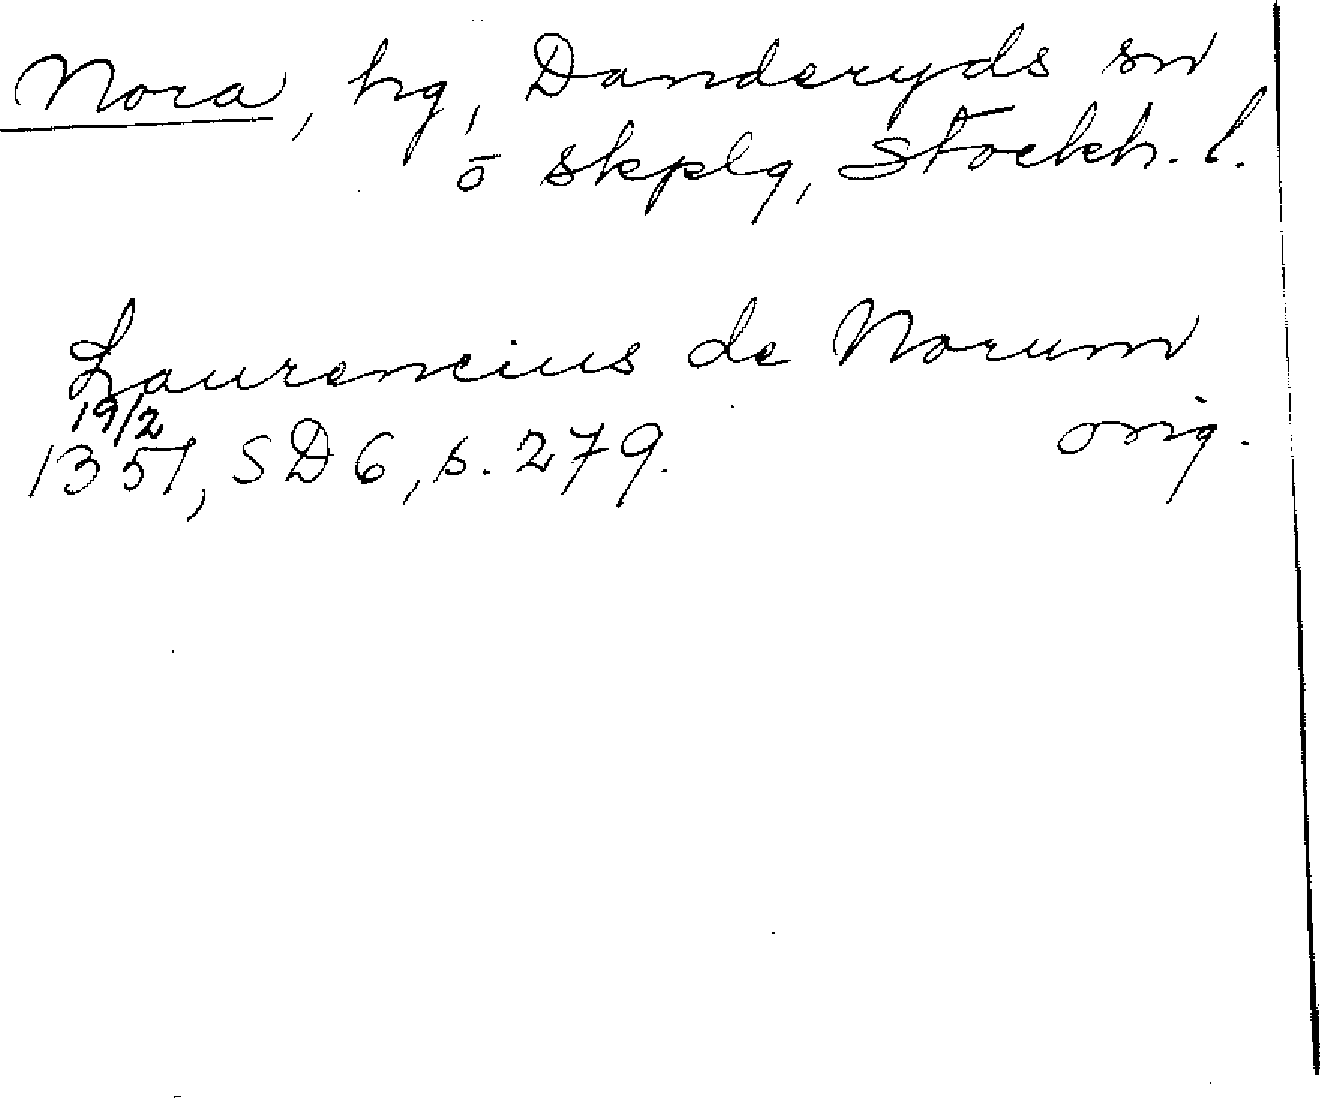 Nora, hg, Danderyds sn
o skplg, Stockh. l.
Laurencius de Norum
19/2
1351, SD 6, s. 279. orig.